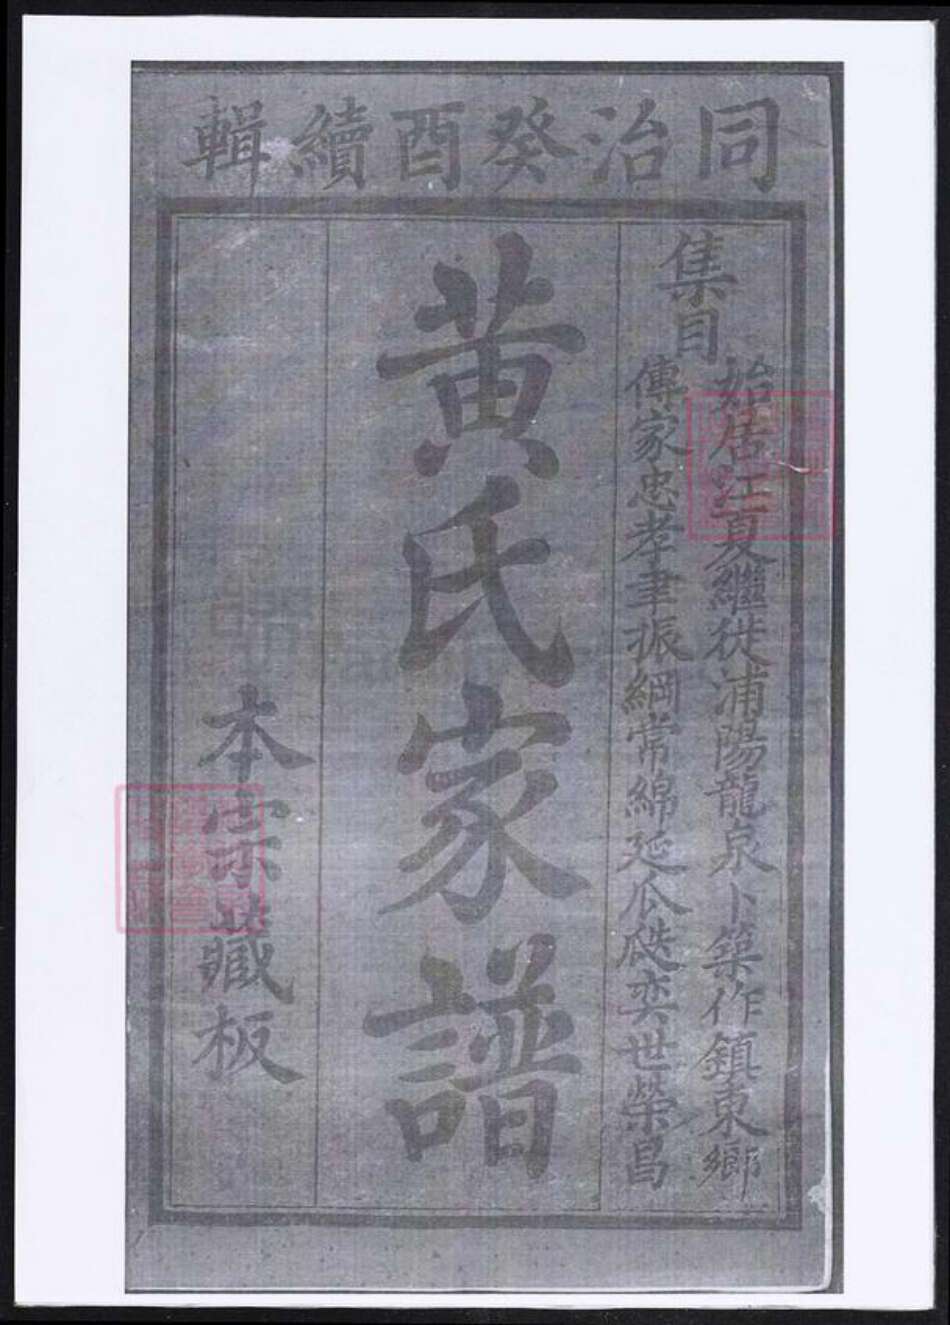 同治癸酉續輯
集目
始居江夏繼徙浦陽龍泉卜築作鎮東鄉
傳家忠孝聿振綱常綿延瓜瓞奕世榮昌
黄氏家譜
本宗藏板